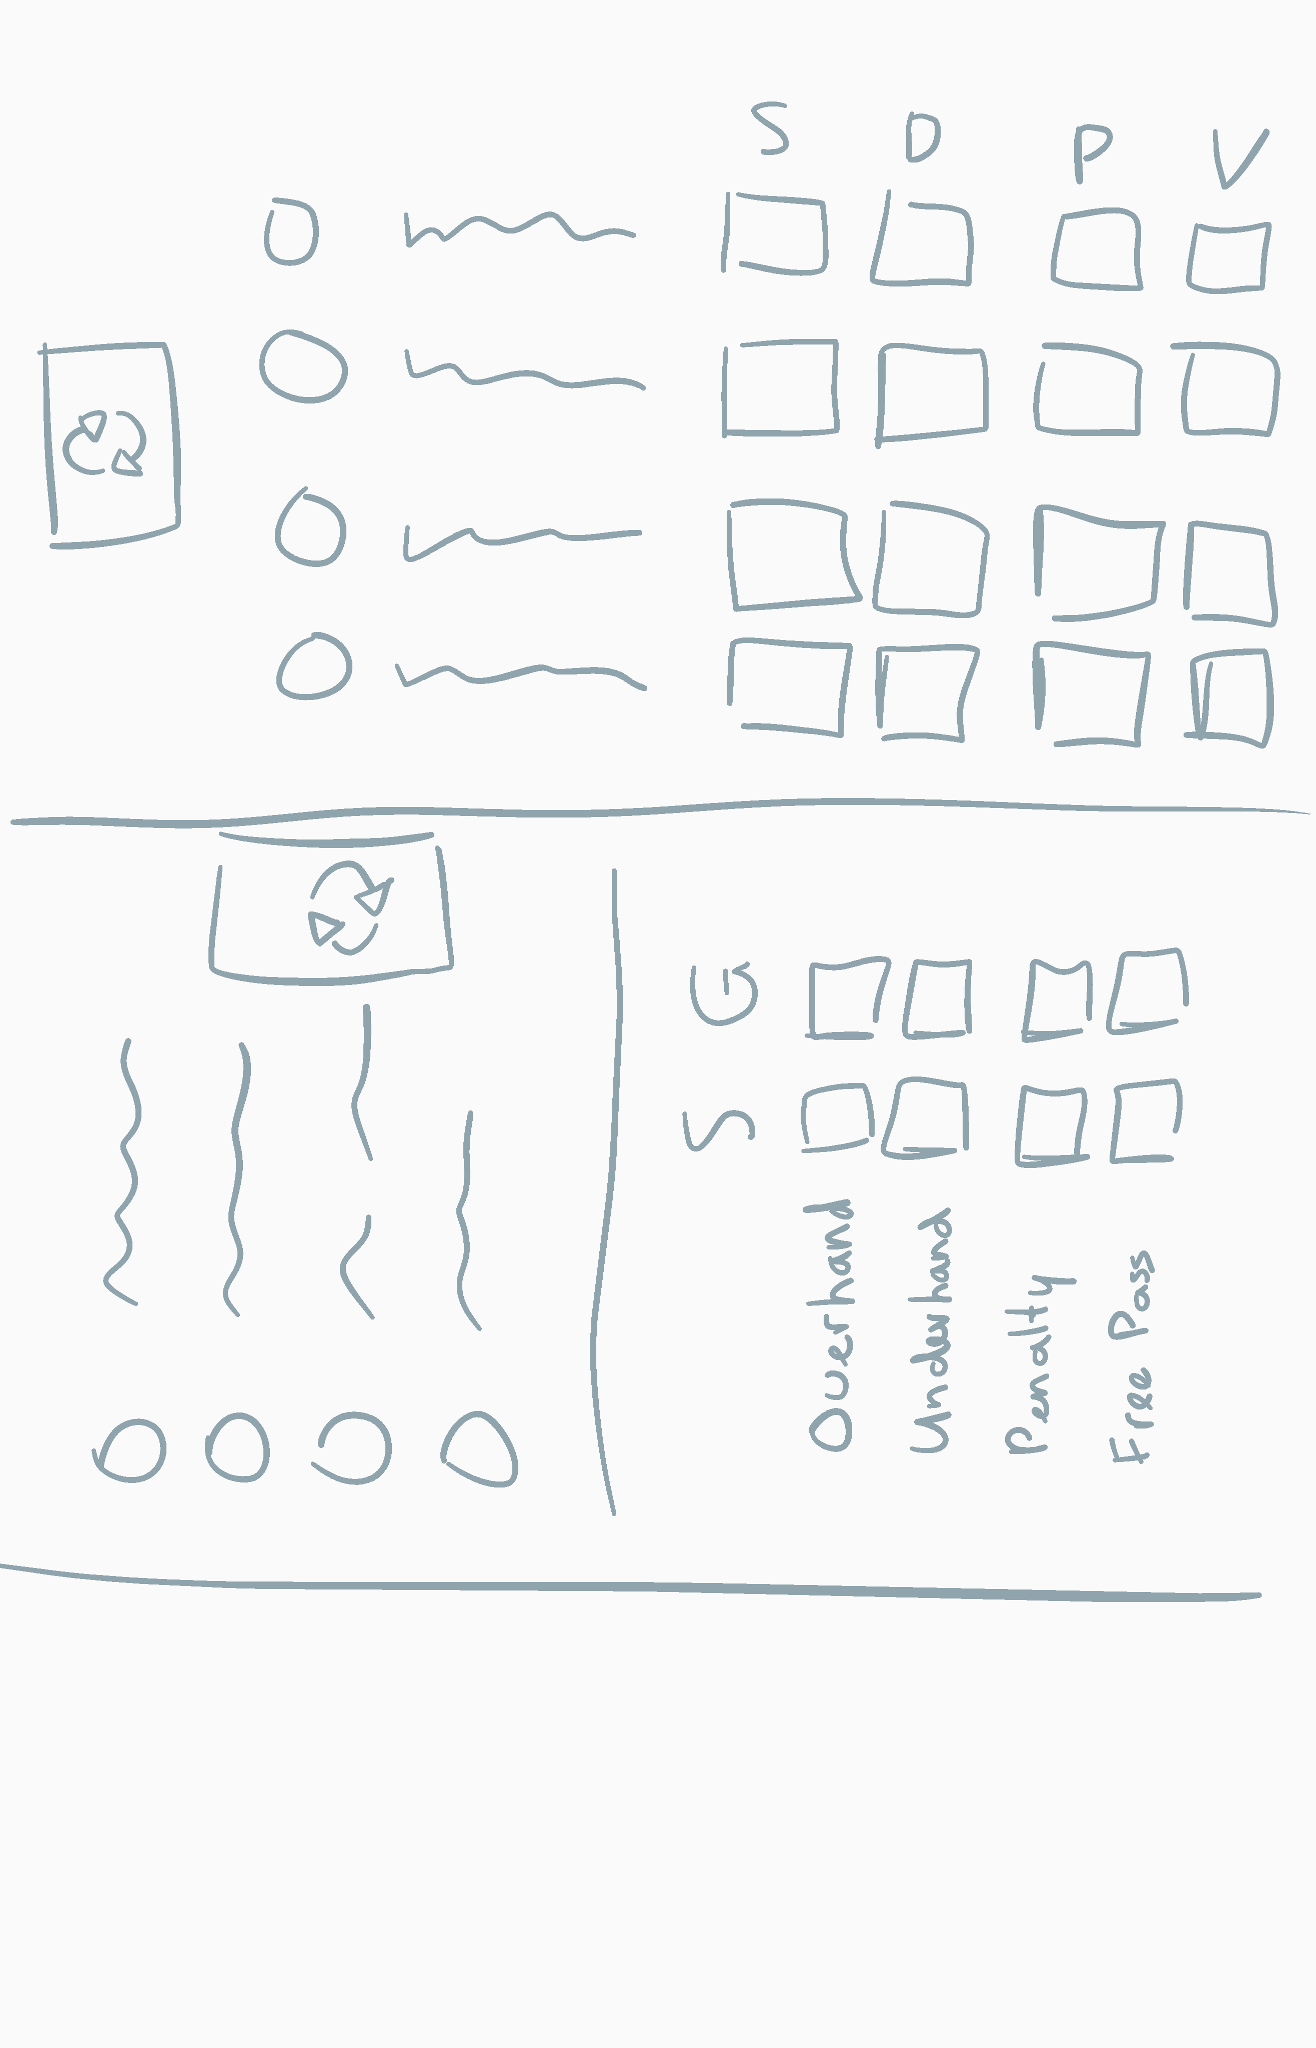 S D P V
G
S
Overhand
Underhand
Penalty
Free Pass